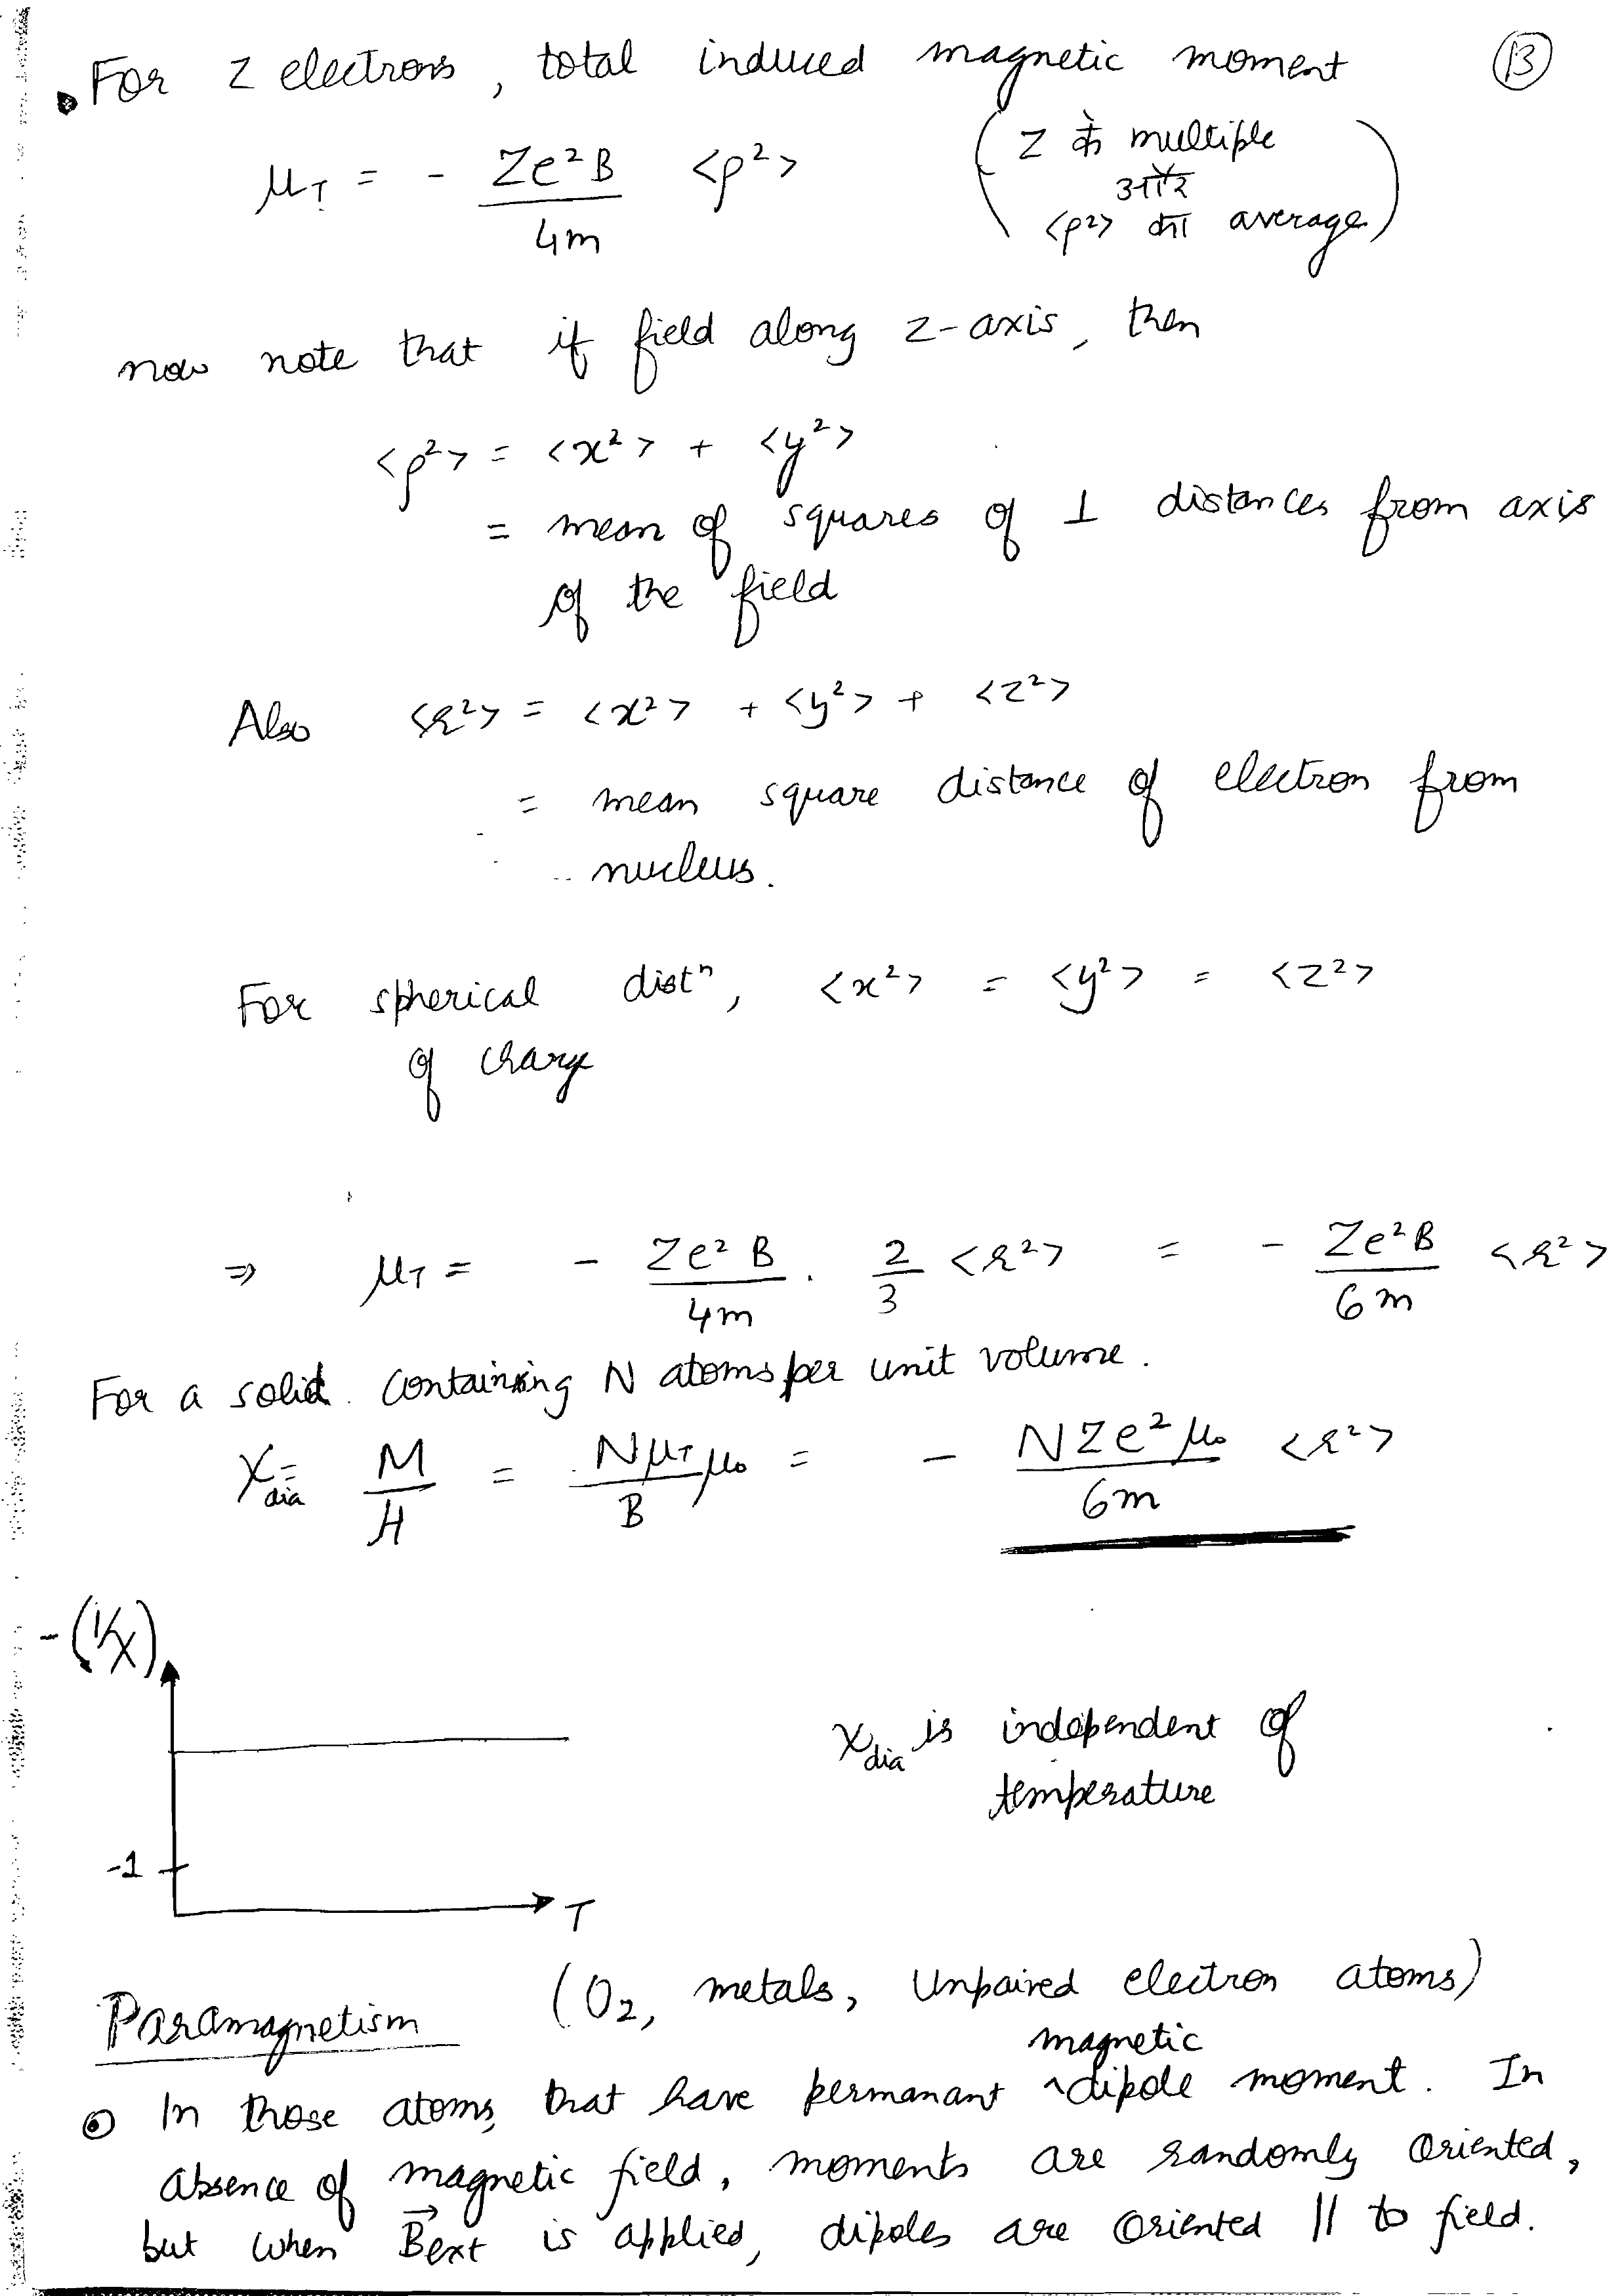 • For Z electrons, total induced magnetic moment (13)
μ_T = - Ze²B/4m <ρ²> (Z से multiple और <ρ²> की average)
now note that if field along z-axis, then
<ρ²> = <x²> + <y²>
= mean of squares of ⊥ distances from axis
of the field
Also <r²> = <x²> + <y²> + <z²>
= mean square distance of electron from
nucleus.
For spherical distⁿ, <x²> = <y²> = <z²>
of charge
⇒ μ_T = - Ze²B/4m . 2/3 <r²> = - Ze²B/6m <r²>
For a solid containing N atoms per unit volume.
χ_dia = M/H = Nμ_T/B μ₀ = - NZe²μ₀/6m <r²>
-(1/χ)
χ_dia is independent of
temperature
-1
T
Paramagnetism (O₂, metals, Unpaired electron atoms)
magnetic
⊙ In those atoms, that have permanant ^dipole moment. In
absence of magnetic field, moments are randomly oriented,
but when B⃗ext is applied, dipoles are oriented || to field.